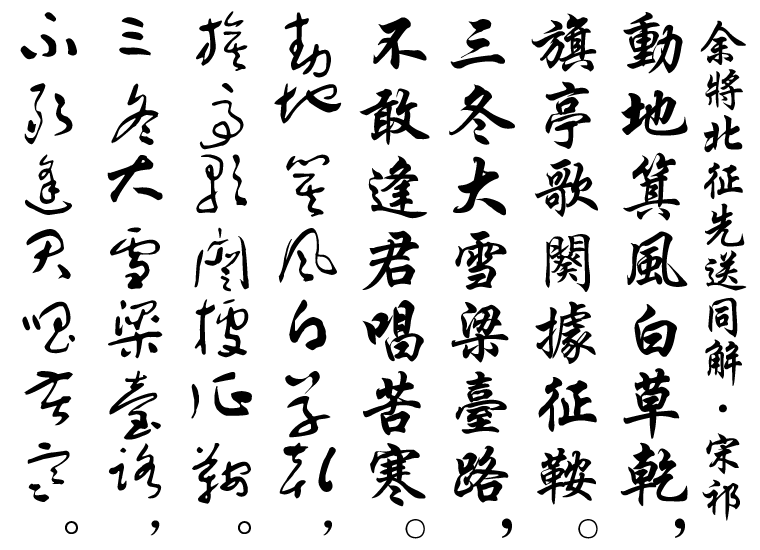 余將北征先送同解・宋祁
動地箕風白草乾，
旗亭歌闋據征鞍。
三冬大雪梁臺路，
不敢逢君唱苦寒。
動地箕風白草乾，
旗亭歌闋據征鞍。
三冬大雪梁臺路，
不敢逢君唱苦寒。